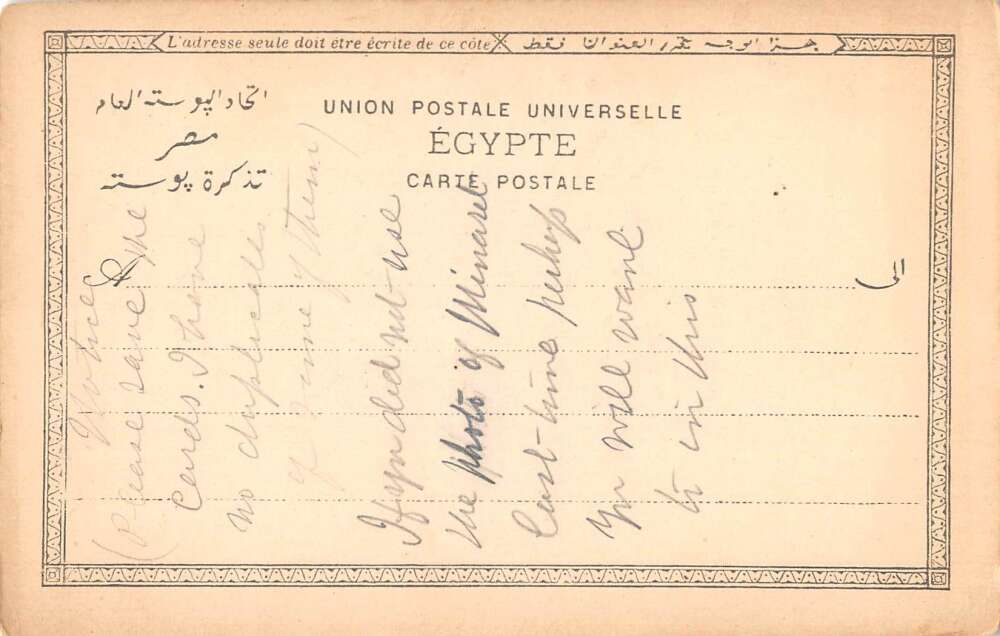 L'adresse seule doit être écrite de ce côté
هذا الوجه يحرر العنوان فقط
اتحاد البوسته العام
مصر
تذكرة بوسته
UNION POSTALE UNIVERSELLE
ÉGYPTE
CARTE POSTALE
الى
A
Notice
(Please save the
cards. I have
no duplicates
of some of them)
If you did not use
the photo of Minaret
last time perhaps
you will want
to in this